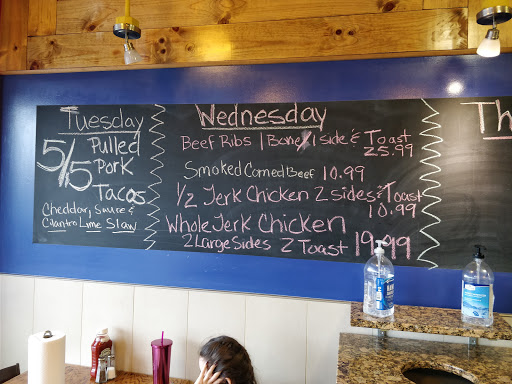 Tuesday
5/5 Pulled
Pork
Tacos
Cheddar, Sauce &
Cilantro Lime Slaw
Wednesday
Beef Ribs 1 Bone / 1 side & Toast
25.99
Smoked Corned Beef 10.99
1/2 Jerk Chicken 2 sides & Toast
10.99
Whole Jerk Chicken
2 Large Sides 2 Toast 19.99
Th